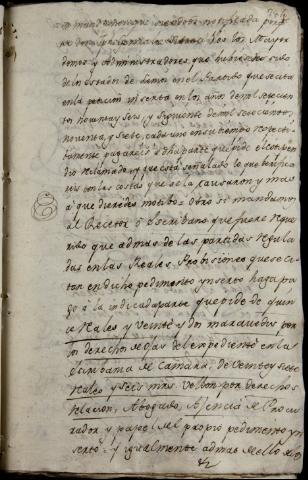 mandamos que siendoos notificada
por los Mayor
domos y Administradores que hubieren sido
de los estados de dichos en el Partido que se cita
en la peticion inserta en los años de mil setecien
tos noventa y seis, y siguiente de mil setecientos
noventa y siete, cada uno en su tiempo respecti
bamente paguen a dha parte que pide el estipen
dio reclamado y que está señalado lo que berifica
reis con las costas que se la causaron y mas
á que dieredes motibo: Otro si mandamos
al Rector ó escribano que fuere reque
rido que ademas de las partidas regula
das en las Reales Probisiones que se ci
tan en dicho pedimento ynserto haga pa
go á la indicada parte que pide de quin
ce reales y veinte y dos maravedis por
los derechos de ojas del expediente en la
escribania de Camara, de veinte y siete
reales y seis mrs. vellon por derechos
relacion, Abogado, Ajencia de Procu
rador y papel del propio pedimento yn
serto: y igualmente ademas